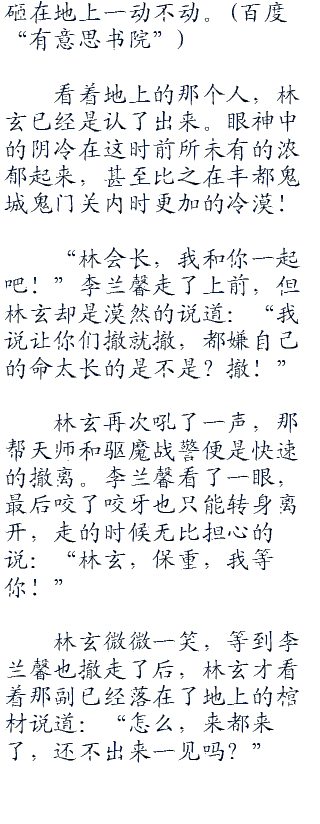 砸在地上一动不动。(百度
“有意思书院”)
看着地上的那个人，林
玄已经是认了出来。眼神中
的阴冷在这时前所未有的浓
郁起来，甚至比之在丰都鬼
城鬼门关内时更加的冷漠！
“林会长，我和你一起
吧！”李兰馨走了上前，但
林玄却是漠然的说道：“我
说让你们撤就撤，都嫌自己
的命太长的是不是？撤！”
林玄再次吼了一声，那
帮天师和驱魔战警便是快速
的撤离。李兰馨看了一眼，
最后咬了咬牙也只能转身离
开，走的时候无比担心的
说：“林玄，保重，我等
你！”
林玄微微一笑，等到李
兰馨也撤走了后，林玄才看
着那副已经落在了地上的棺
材说道：“怎么，来都来
了，还不出来一见吗？”